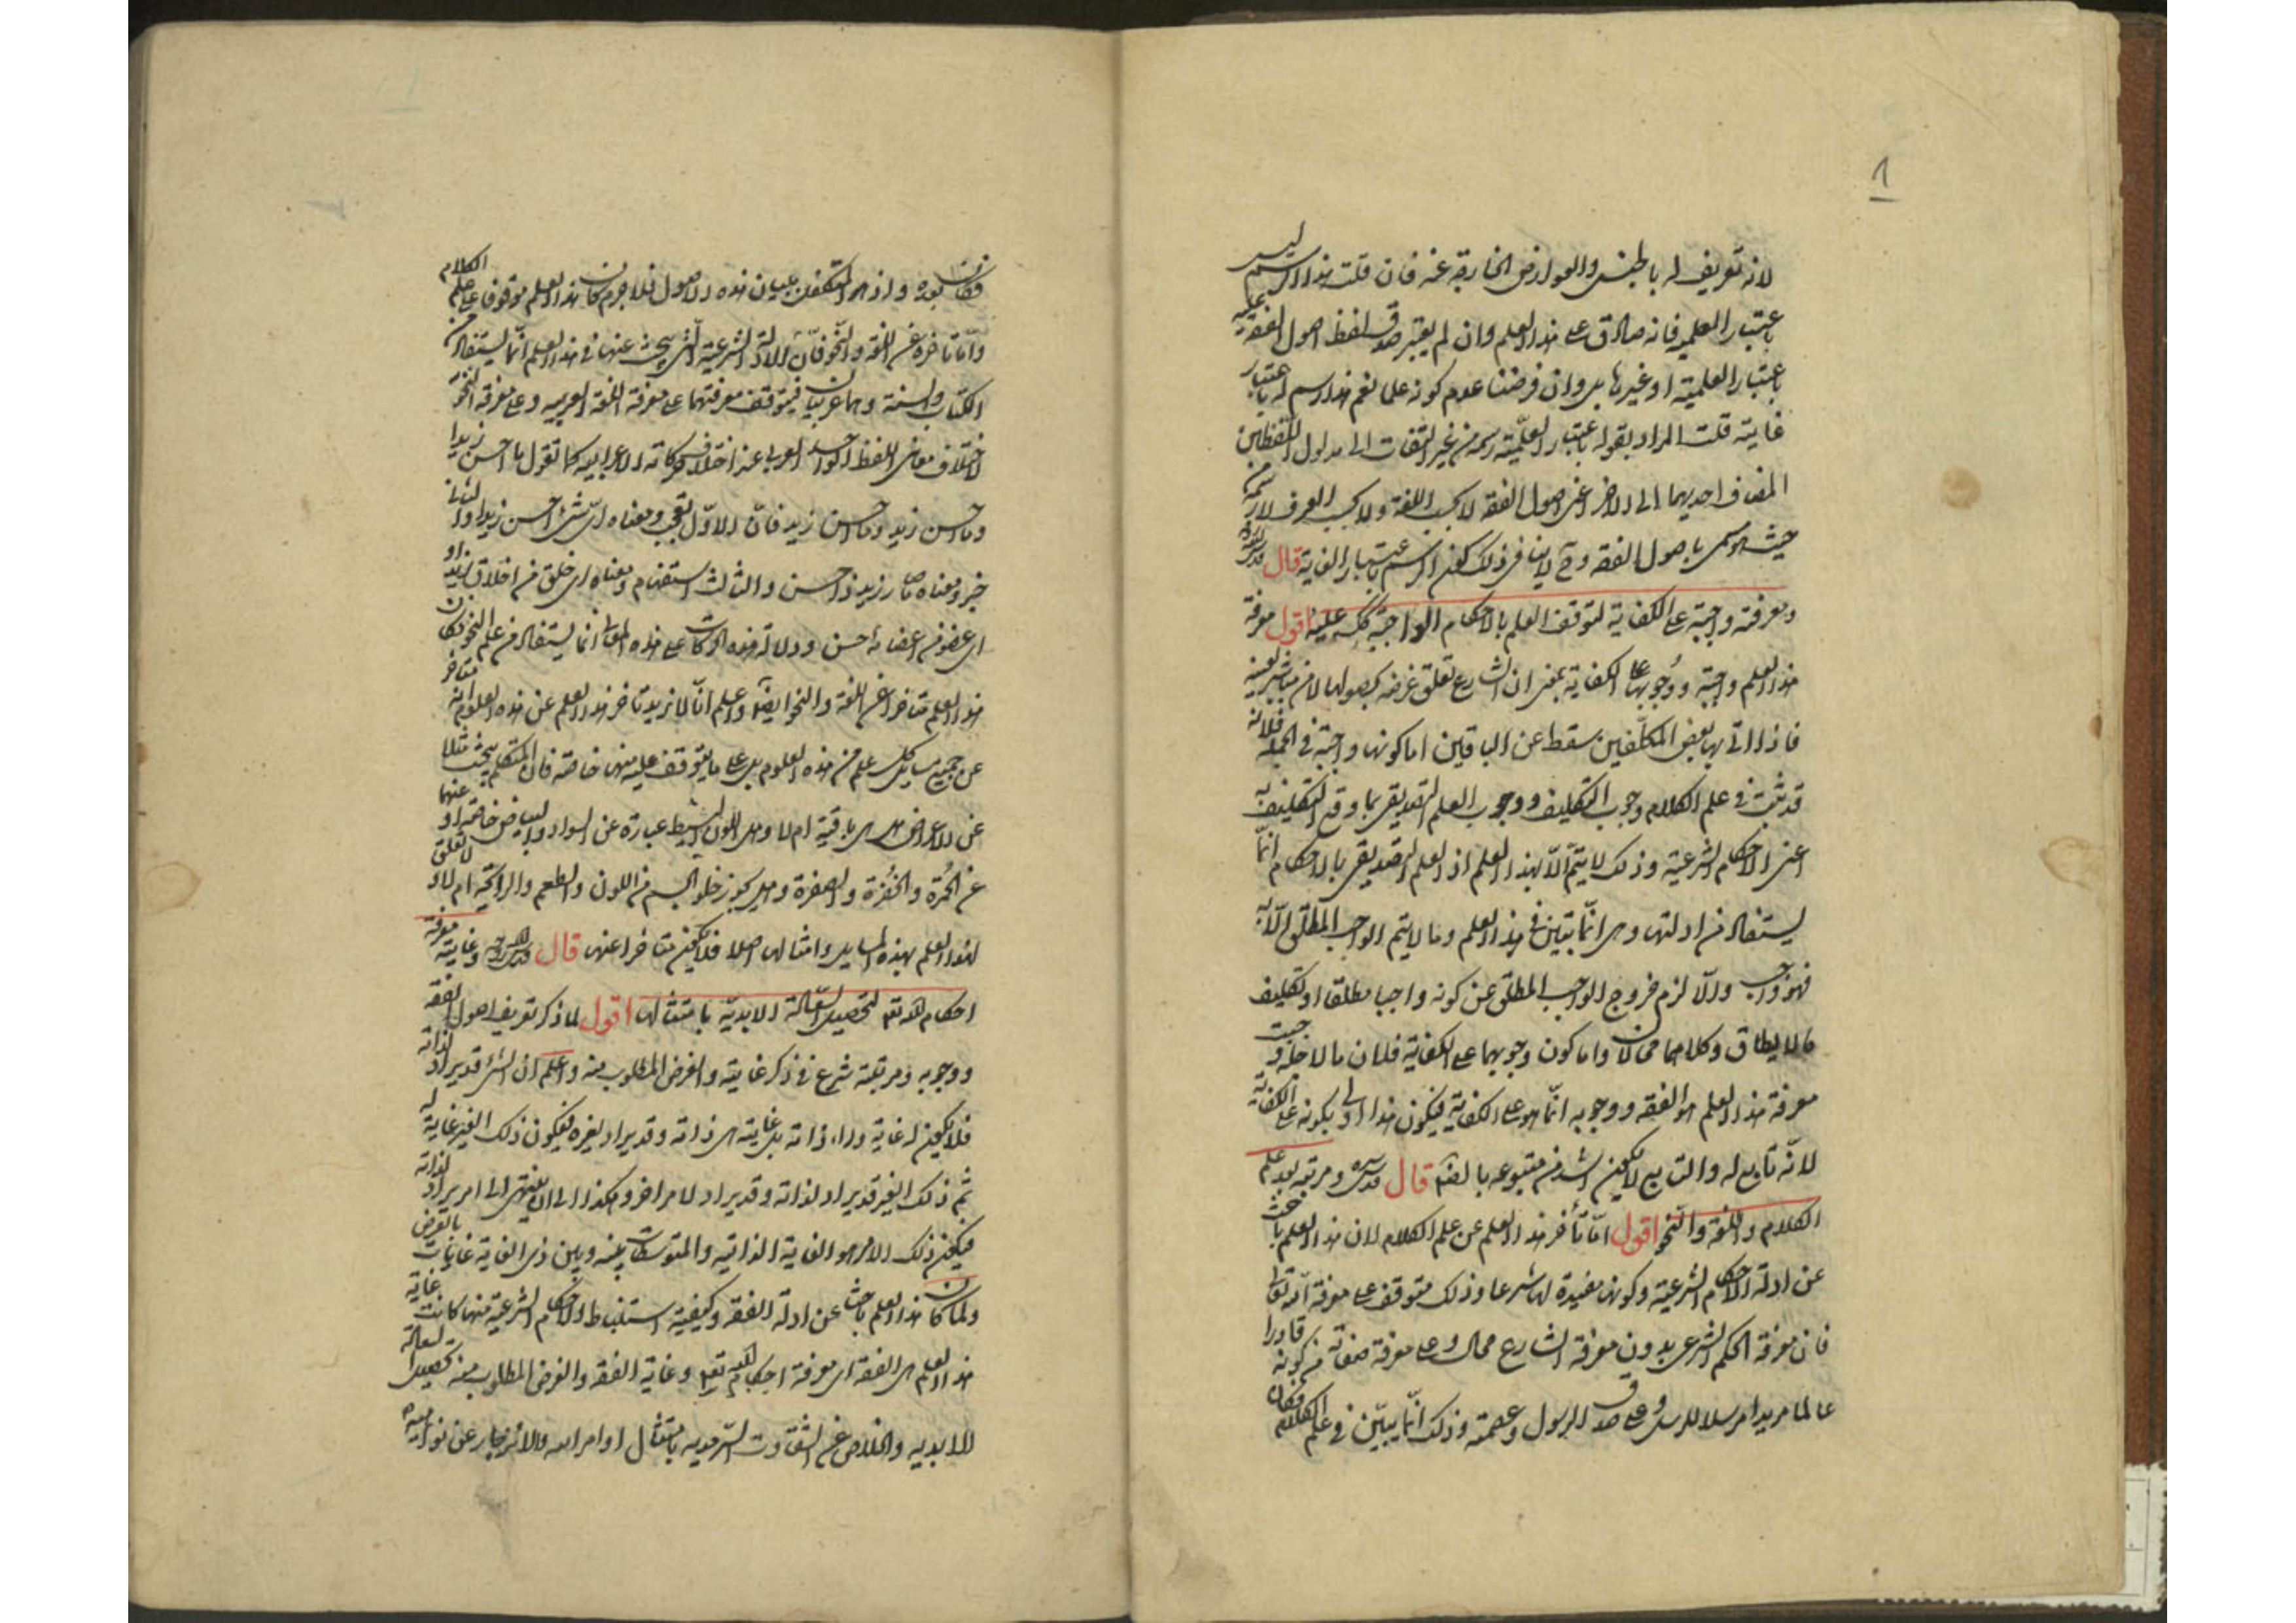 ١
لانه تعريف له بالجنس والعوارض الخارجة عنه فان قلت هذا الرسم ليس
باعتبار العلمية فانه صادق على هذا العلم وان لم يعتبر صدق لفظ اصول الفقه عليه
باعتبار العلمية او غيرها بل وان فرضنا عدم كونه علما نعم هذا رسم له باعتبار
غايته قلت المراد بقوله باعتبار العلمية رسمه من غير التفات الى مدلول اللفظين
المضاف احديهما الى الاخر اعنى اصول الفقه لا بحسب اللغة ولا بحسب العرف لا رسمه من
حيث هو مسمى باصول الفقه وح لا ينافى ذلك كون الرسم باعتبار الغاية قال قدس الله سره
ومعرفته واجبة على الكفاية لتوقف العلم بالاحكام الواجبة كك عليه اقول معرفة
هذا العلم واجبة ووجوبها على الكفاية بمعنى ان الشارع تعلق غرضه بحصولها لا من مباشر بعينه
فاذا اتى بها بعض المكلفين سقط عن الباقين اما كونها واجبة في الجملة فلانه
قد ثبت في علم الكلام وجوب التكليف ووجوب العلم التصديقى بما وقع التكليف به
اعنى الاحكام الشرعية وذلك لا يتم الّا بهذا العلم اذ العلم التصديقى بالاحكام انّما
يستفاد من ادلتها وهى انّما تبين في هذا العلم وما لا يتم الواجب المطلق الّا به
فهو واجب والّا لزم خروج الواجب المطلق عن كونه واجبا مطلقا او تكليف
ما لا يطاق وكلاهما محالان واما كون وجوبها على الكفاية فلان ما لاجله وجبت
معرفة هذا العلم هو الفقه ووجوبه انّما هو على الكفاية فيكون هذا اولى بكونه على الكفاية
لانّه تابع له والتابع لا يكون اشد من متبوعه بالضرورة قال قدس سره ومرتبته بعد علم
الكلام واللغة والنحو اقول امّا تأخر هذا العلم عن علم الكلام لان هذا العلم باحث
عن ادلة الاحكام الشرعية وكونها مفيدة لها شرعا وذلك متوقف على معرفة الله تعالى
فان معرفة الحكم الشرعى بدون معرفة الشارع محال وعلى معرفة صفاته من كونه قادرا
عالما مريدا مرسلا للرسل وعلى صدق الرسول وعصمته وذلك انّما يبيّن في علم الكلام فكان
فكان بعده واذ هو المتكفل ببيان هذه الاصول فلا جرم كان هذا العلم موقوفا على علم الكلام
وامّا تاخره عن اللغة والنحو فانّ الادلة الشرعية التى يبحث عنها في هذا العلم انّما يستفاد من
الكتاب والسنة وهما عربيان فيتوقف معرفتهما على معرفة اللغة العربيه وعلى معرفة النحو
لاختلاف معانى اللفظ الواحد العربى عند اختلاف حركاته الاعرابيه كما تقول ما احسن زيدا
وما احسن زيد وما احسن زيد فانّ الاوّل تعجب ومعناه اىّ شئ احسن زيدا والثانى
خبر ومعناه ما صار زيد ذا حسن والثالث استفهام ومعناه اى خلق من اخلاق زيد او
اى عضو من اعضائه احسن ودلالة هذه الحركات على هذه المعانى انما يستفاد من علم النحو فكان
هذا العلم متاخرا عن اللغة والنحو ايضا واعلم انّا لا نريد تاخر هذا العلم عن هذه العلوم انه متاخر
عن جميع مسايل كل علم من هذه العلوم بل على ما يتوقف عليه منها خاصة فان المتكلم يبحث مثلا
عن الاعراض هل هى باقية ام لا وهل اللون البسيط عبارة عن السواد والبياض خاصّة او عنهما
عن الحمرة والخضرة والصفرة وهل يجوز خلو الجسم من اللون والطعم والرائحة ام لا ولا تعلق
لهذا العلم بهذه المسايل وامثالها اصلا فلا يكون متاخرا عنها قال قدس الله روحه وغايته معرفة
احكام الله تعالى لتحصيل السعادة الابديّة بامتثالها اقول لما ذكر تعريف اصول الفقه
ووجوبه ومرتبته شرع في ذكر غايته والغرض المطلوب منه واعلم ان الشئ قد يراد لذاته
فلا يكون له غاية وراء ذاته بل غايته هى ذاته وقد يراد لغيره فيكون ذلك الغير غاية له
ثم ذلك الغير قد يراد لذاته وقد يراد لامر اخر وهكذا الى ان ينتهى الى امر يراد لذاته
فيكون ذلك الامر هو الغاية الذاتية والمتوسطات بينه وبين ذى الغاية غايات بالعرض
ولما كان هذا العلم باحثا عن ادلة الفقه وكيفية استنباط الاحكام الشرعية منها كانت غاية
هذا العلم هى الفقه اى معرفة احكام الله تعالى وغاية الفقه والغرض المطلوب منه تحصيل السعادة
الابديه والخلاص عن الشقاوت السرمديه بامتثال اوامر الله والانزجار عن نواهيه